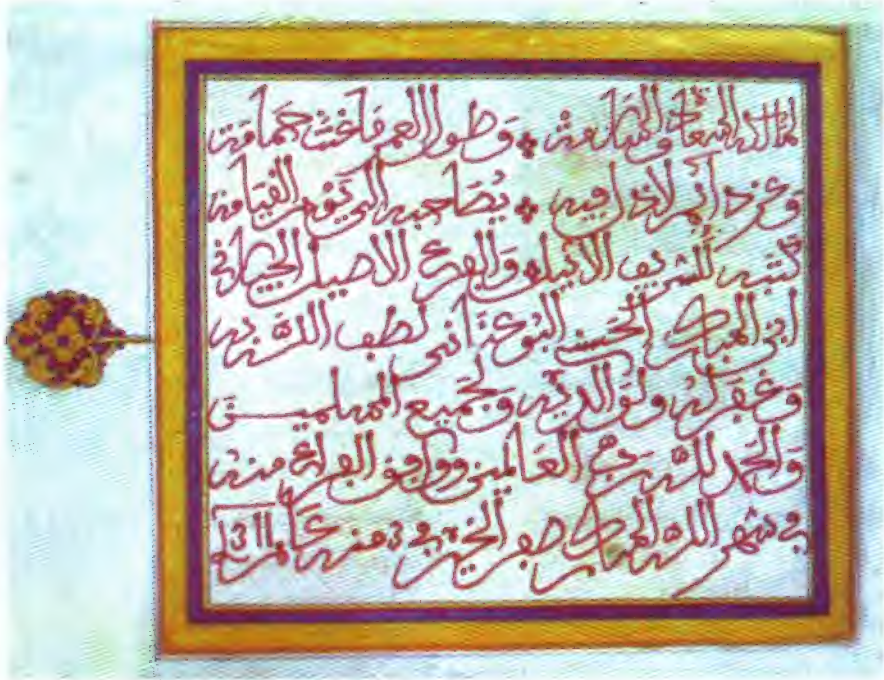 لمالكه السعادة والسلامة وطول العمر ما غنت حمامة
وعز دائم لا ذل فيه يصاحبه إلى يوم القيامة
كتبه الشريف الاثيل والفرع الاصيل
ابن المبارك الحسن البوعناني لطف الله به
وغفر له ولوالديه ولجميع المسلمين
والحمد لله رب العالمين ووافق الفراغ منه
في شهر الله المبارك صفر الخير في 3 منه عام 1311